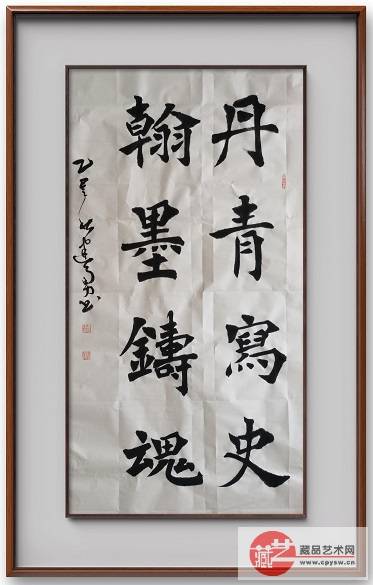 丹青寫史
翰墨鑄魂
藏艺
藏品艺术网
www.cpysw.cn